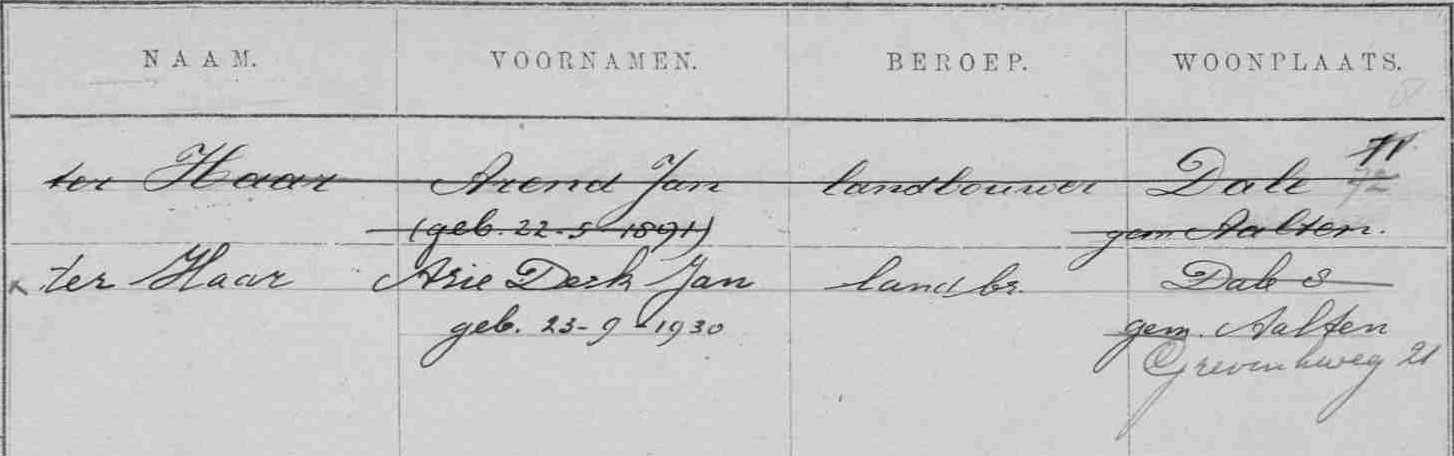 NAAM. VOORNAMEN. BEROEP. WOONPLAATS.
ter Haar Arend Jan landbouwer Dale
(geb. 22-5-1891) gem Aalten.
ter Haar Arie Derk Jan landbr. Dale 8
geb. 23-9-1930 gem. Aalten
21